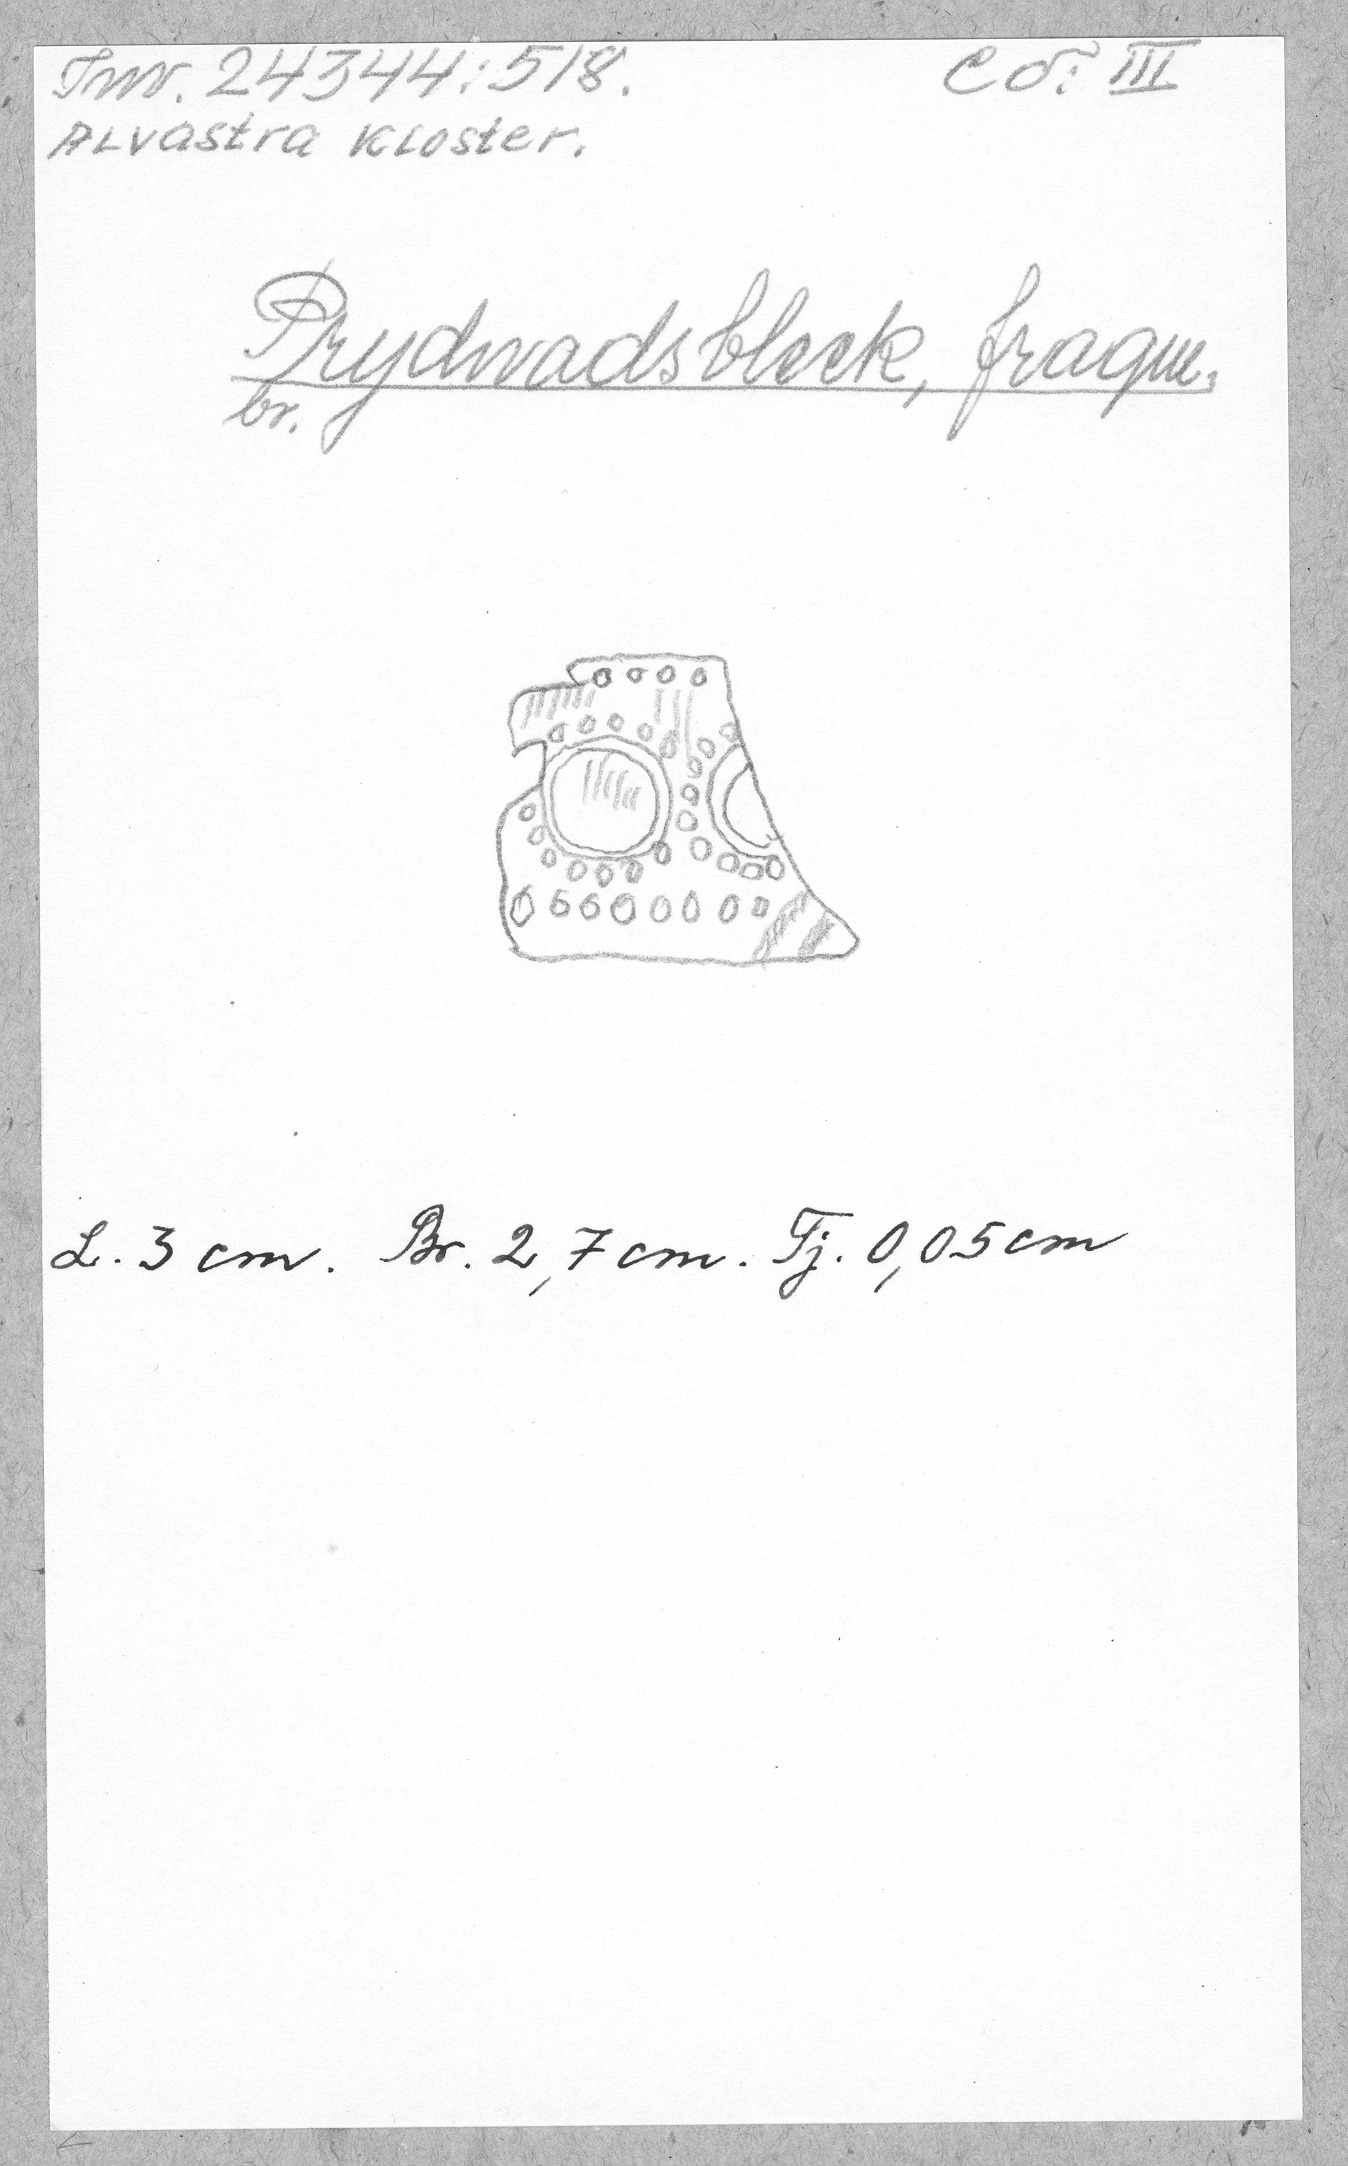 Inv. 24344:518. CÖ: III
ALvastra KLoster.
Prydnadsbleck, fragm.
br.
L. 3 cm. Br. 2,7 cm. Tj. 0,05 cm